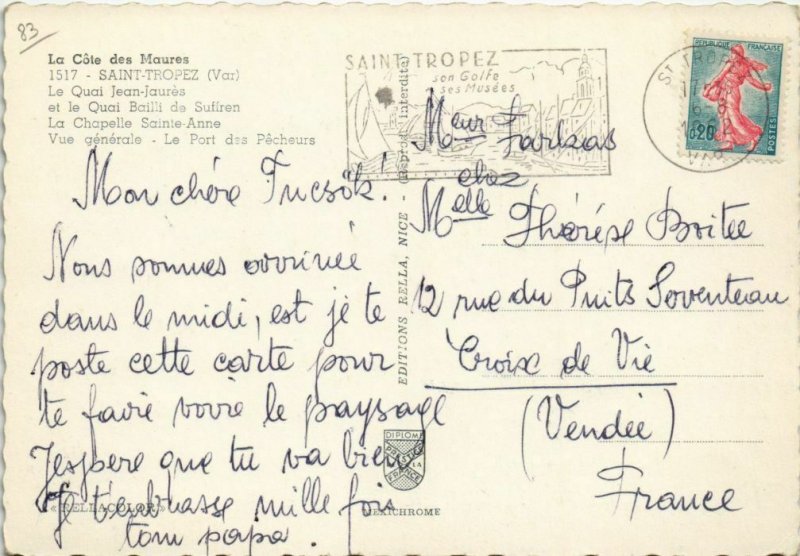 83
La Côte des Maures
1517 - SAINT-TROPEZ (Var)
Le Quai Jean-Jaurès
et le Quai Bailli de Suffren
La Chapelle Sainte-Anne
Vue générale - Le Port des Pêcheurs
Mon chére Tucsök!
Nous sommes arrivée
dans le midi, est je te
poste cette carte pour
te favié vovie le paysage
J'espere que tu va bien
Je t'embrasse mille fois
tom papa.
« RELLACOLOR »
EDITIONS RELLA, NICE - (Reprod. interdite)
DIPLOME
PRESTIGE
DE LA
FRANCE
MEXICHROME
SAINT-TROPEZ
son Golfe
ses Musées
REPUBLIQUE FRANÇAISE
0,20
POSTES
ST TROPEZ
VAR
Meur Farkas
chez
Melle Thérése Boitee
12 rue du Puits Soventeau
Croix de Vie
(Vendée)
France